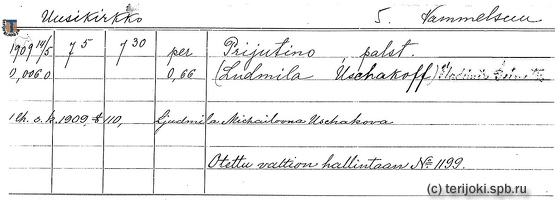 Uusikirkko 5. Vammelsuu
1909 14/5 7 5 7 30 per Prijutino palst.
0,0060 0,66 (Ludmila Uschakoff)
1 lk. o. k. 1909, 110, Ljudmila Michailovna Uschakova
Otettu valtion hallintaan No 1199.
(c) terijoki.spb.ru